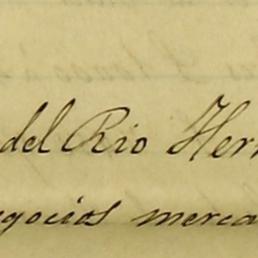 del Rio Her
negocios merca